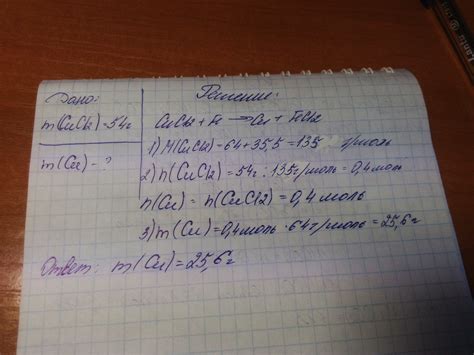 Дано:
m(CuCl2)=54г
m(Cu)-?
Решение:
CuCl2+Fe → Cu + FeCl2
1) M(CuCl2)=64+35,5=135 г/моль
2) n(CuCl2)=54г:135г/моль=0,4моль
n(Cu)=n(CuCl2)=0,4моль
3) m(Cu)=0,4моль·64г/моль=25,6г
Ответ: m(Cu)=25,6г